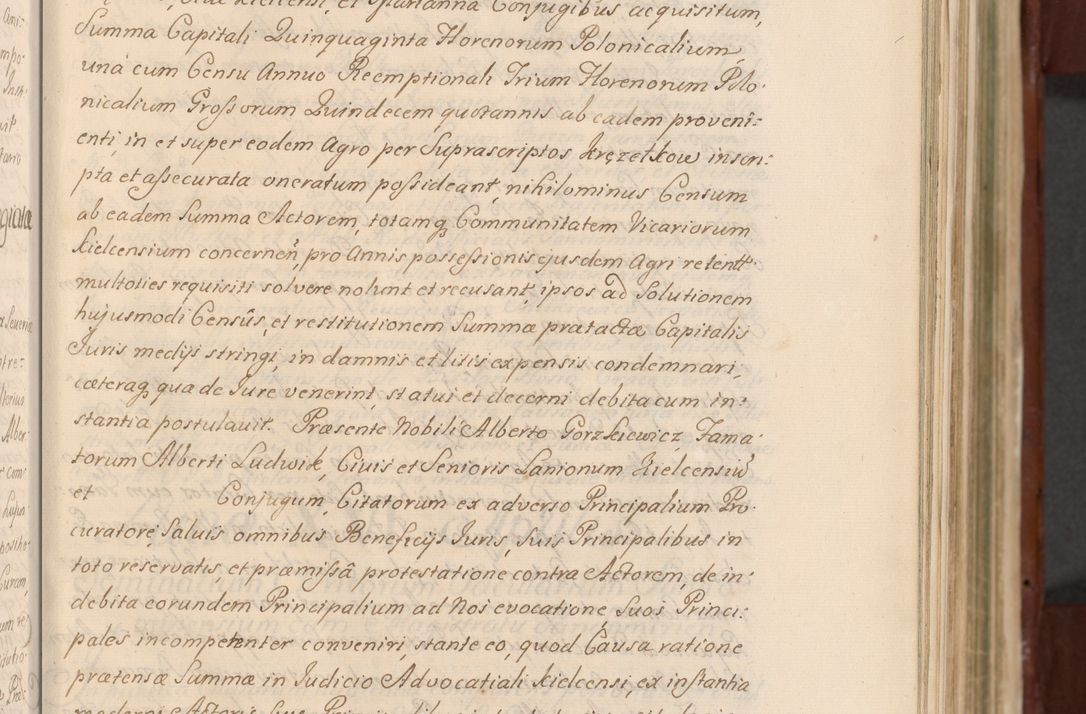 Kielcensi, et Marianna Conjugibus acquisitum,
Summa Capitali Quinquaginta Florenorum Polonicalium,
una cum Censu Annuo Reemptionali Trium Florenorum Polo-
nicalium Grossorum Quindecem, quotannis ab eadem proveni=
enti, in et super eodem Agro per Suprascriptos Kręzetkow inscri=
pta et assecurata oneratum possideant, nihilominus Censum
ab eadem Summa Actorem, totamq3 Communitatem Vicariorum
Kielcensium concernen, pro Annis possessionis ejusdem Agri retentt
multoties requisiti solvere nolunt et recusant, ipsos ad Solutionem
hujusmodi Censûs, et restitutionem Summæ prætactæ Capitalis
Juris medijs stringi, in damnis et litis expensis condemnari,
cæteraq3 quæ de Jure venerint, statui et decerni debita cum in=
stantia postulavit. Præsente Nobili Alberto Gorzkiewicz Fama-
torum Alberti Ludwik, Civis et Senioris Lanionum Kielcensiu
et Conjugum, Citatorum ex adverso Principalium Pro-
curatore, Salvis omnibus Beneficijs Juris, Suis Principalibus in
toto reservatis, et præmissâ protestatione contra Actorem, de in=
debita eorundem Principalium ad Nos evocatione, Suos Princi=
pales incompetenter conveniri, stante eo, quod Causa ratione
prætensæ Summæ in Judicio Advocatiali Kielcensi, ex instantia
moderni Actoris